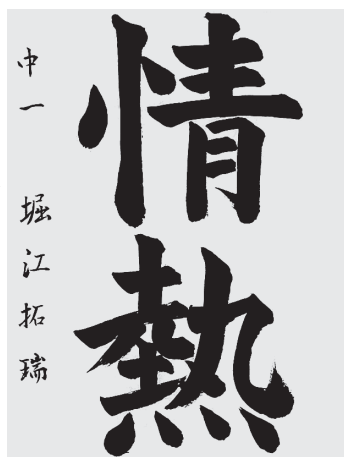 情熱
中一 堀江拓瑞